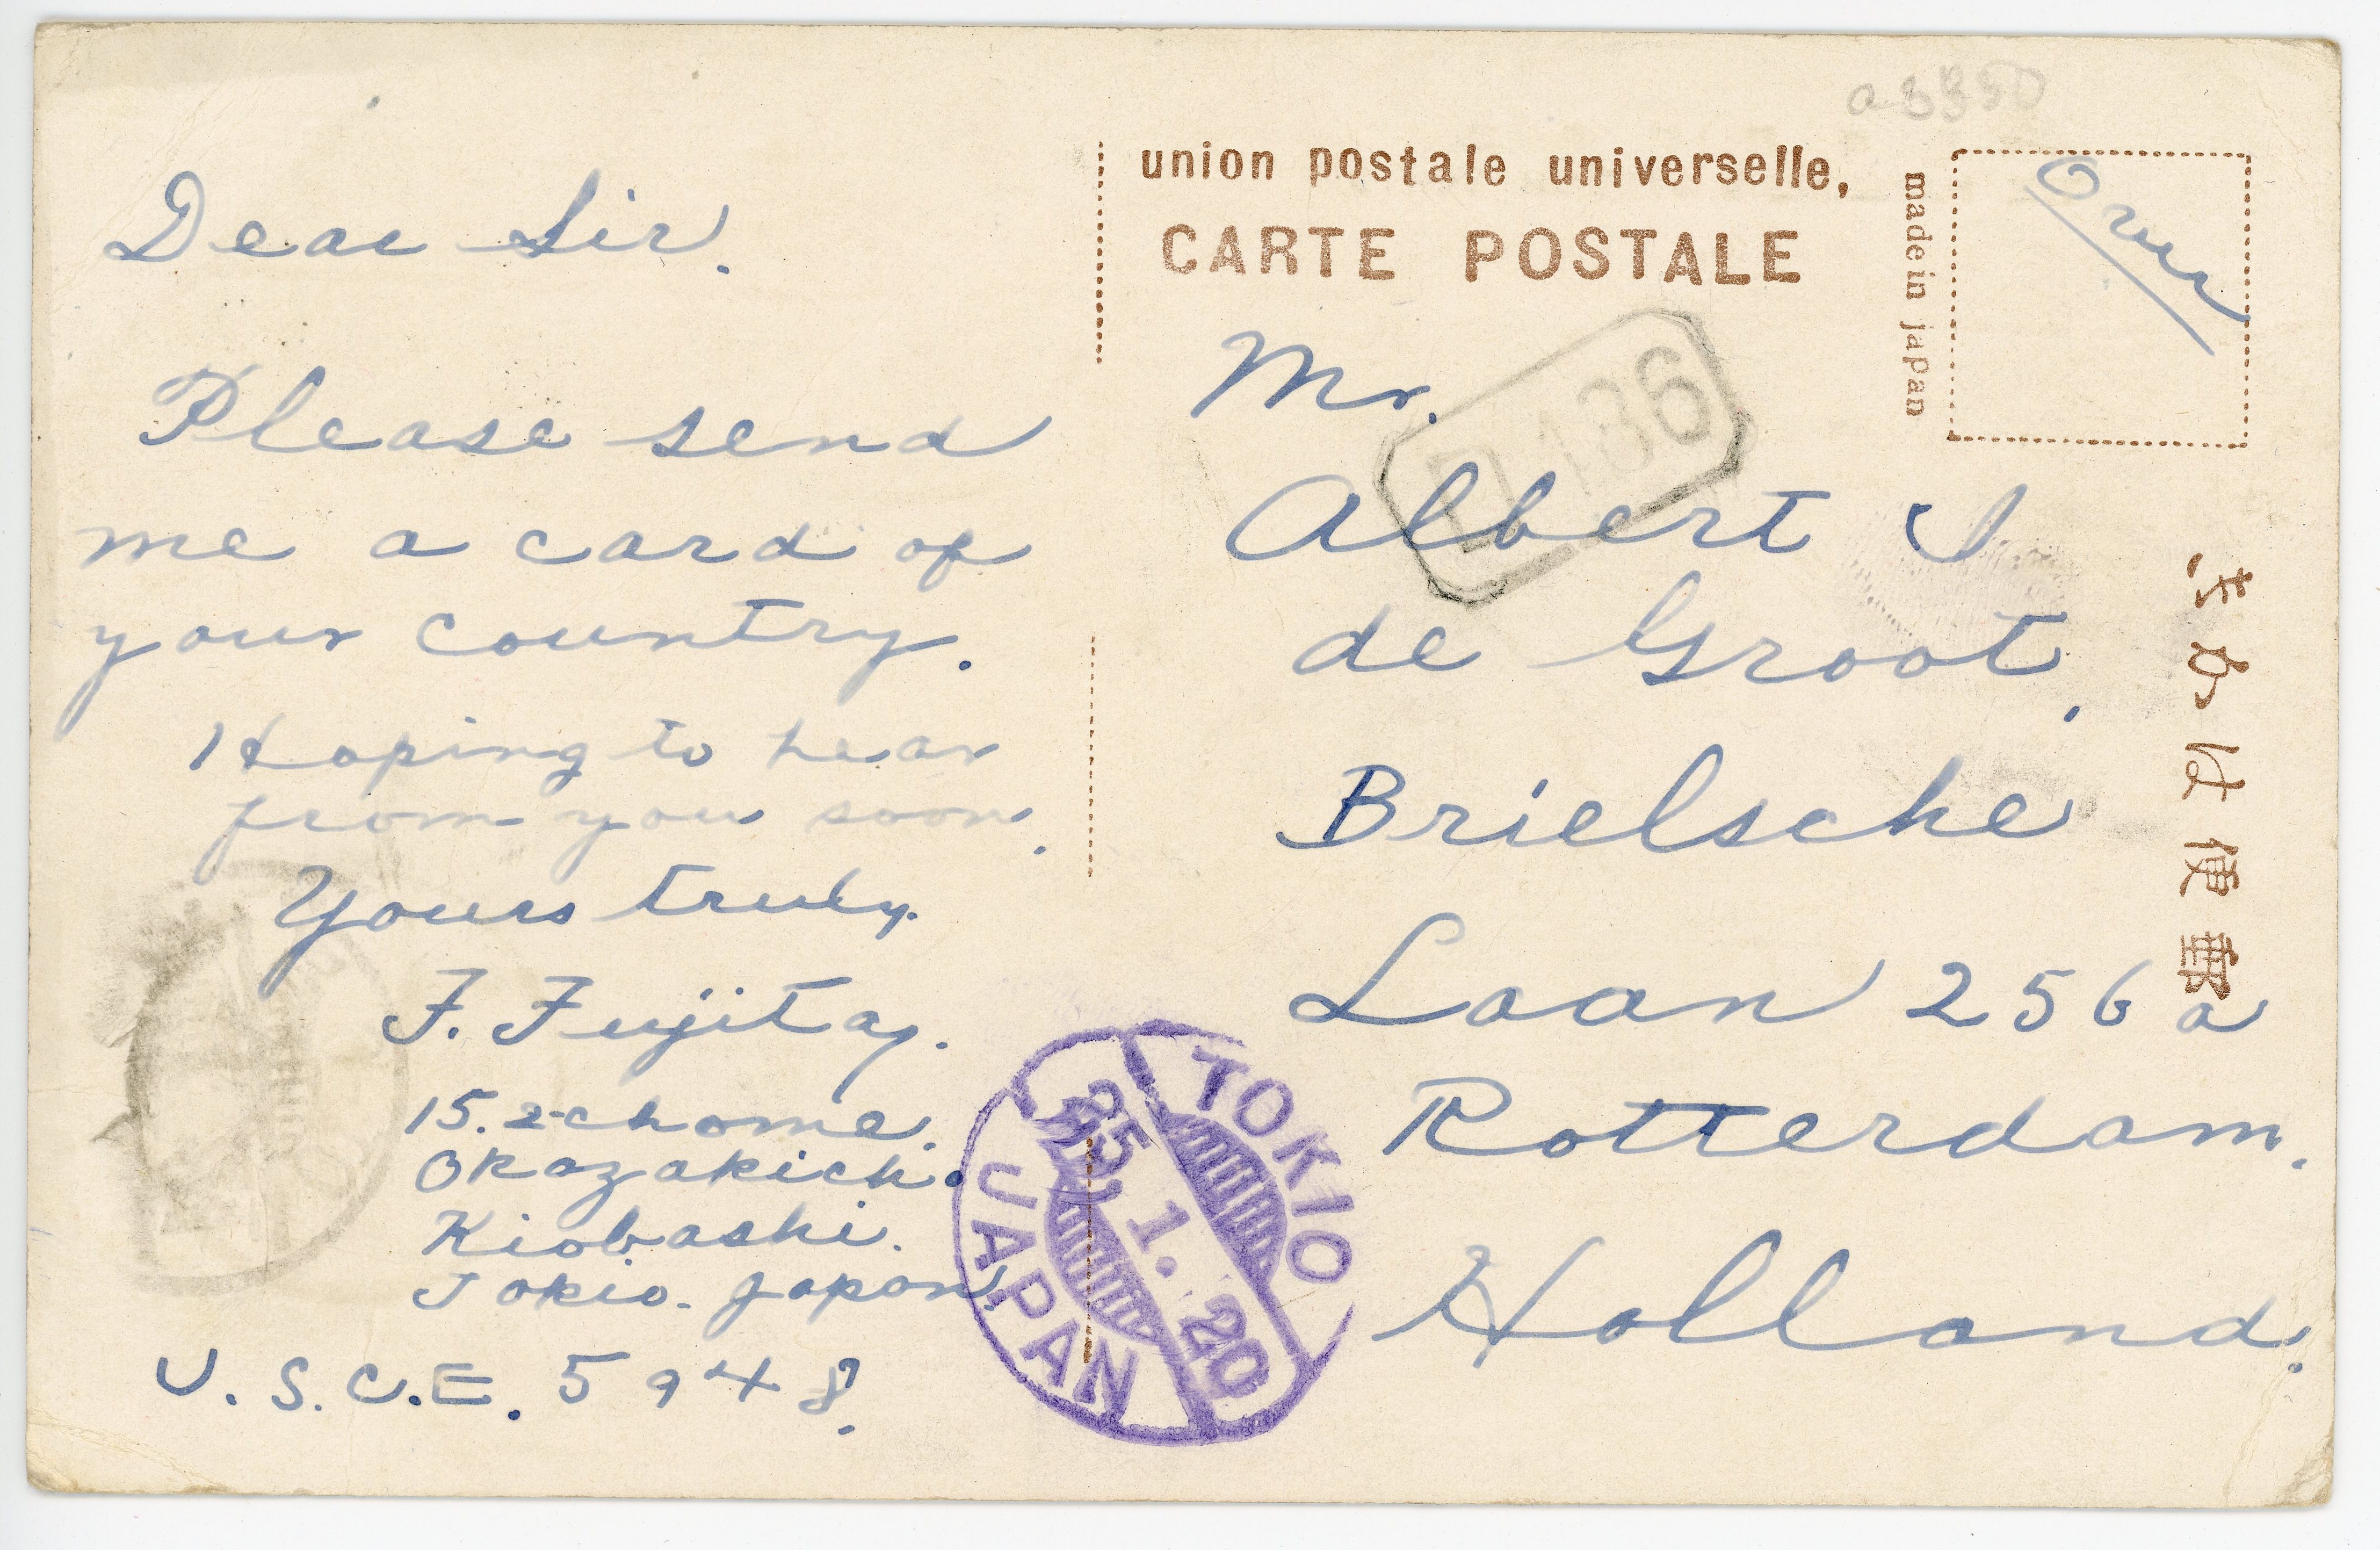 a8350
union postale universelle,
CARTE POSTALE
made in japan
Dear Sir.
Please send
me a card of
your country.
Hoping to hear
from you soon.
Yours truly.
F. Fujitay.
15. 2-chome.
Okazakich.
Kiobashi.
Tokio. Japan.
U. S. C. E. 5948.
Mr.
Albert J
de Groot.
Brielsche
Laan 256 a
Rotterdam.
Holland.
郵便はかき
186
TOKIO
25. 1. 20
JAPAN